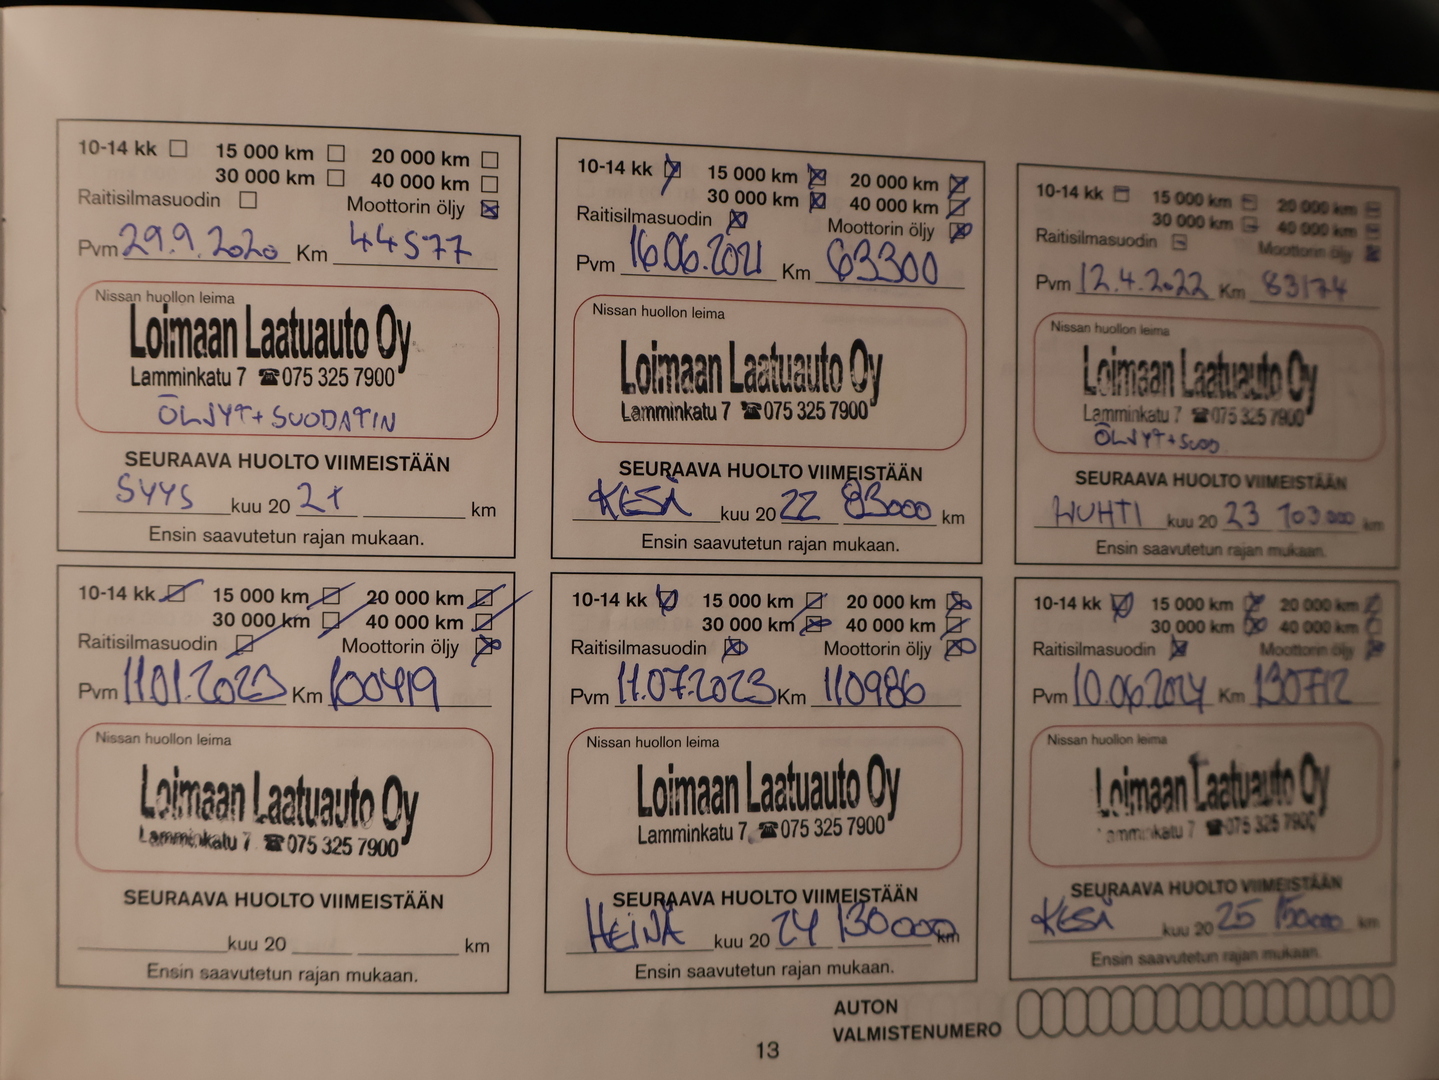 10-14 kk 15 000 km 20 000 km
30 000 km 40 000 km
Raitisilmasuodin Moottorin öljy
Pvm 29.9.2020 Km 44577
Nissan huollon leima
Loimaan Laatuauto Oy
Lamminkatu 7 ☎075 325 7900
ÖLJYT+SUODATIN
SEURAAVA HUOLTO VIIMEISTÄÄN
SYYS kuu 20 21 km
Ensin saavutetun rajan mukaan.
10-14 kk 15 000 km 20 000 km
30 000 km 40 000 km
Raitisilmasuodin Moottorin öljy
Pvm 16.06.2021 Km 63300
Nissan huollon leima
Loimaan Laatuauto Oy
Lamminkatu 7 ☎075 325 7900
SEURAAVA HUOLTO VIIMEISTÄÄN
KESÄ kuu 20 22 83000 km
Ensin saavutetun rajan mukaan.
10-14 kk 15 000 km 20 000 km
30 000 km 40 000 km
Raitisilmasuodin Moottorin öljy
Pvm 12.4.2022 Km 83174
Nissan huollon leima
Loimaan Laatuauto Oy
Lamminkatu 7 ☎075 325 7900
ÖLJYT+SUOD
SEURAAVA HUOLTO VIIMEISTÄÄN
HUHTI kuu 20 23 103000 km
Ensin saavutetun rajan mukaan.
10-14 kk 15 000 km 20 000 km
30 000 km 40 000 km
Raitisilmasuodin Moottorin öljy
Pvm 11.01.2023 Km 100419
Nissan huollon leima
Loimaan Laatuauto Oy
Lamminkatu 7 ☎075 325 7900
SEURAAVA HUOLTO VIIMEISTÄÄN
kuu 20 km
Ensin saavutetun rajan mukaan.
10-14 kk 15 000 km 20 000 km
30 000 km 40 000 km
Raitisilmasuodin Moottorin öljy
Pvm 11.07.2023 Km 110986
Nissan huollon leima
Loimaan Laatuauto Oy
Lamminkatu 7 ☎075 325 7900
SEURAAVA HUOLTO VIIMEISTÄÄN
HEINÄ kuu 20 24 130000 km
Ensin saavutetun rajan mukaan.
10-14 kk 15 000 km 20 000 km
30 000 km 40 000 km
Raitisilmasuodin Moottorin öljy
Pvm 10.06.2024 Km 130712
Nissan huollon leima
Loimaan Laatuauto Oy
Lamminkatu 7 ☎075 325 7900
SEURAAVA HUOLTO VIIMEISTÄÄN
KESÄ kuu 20 25 150000 km
Ensin saavutetun rajan mukaan.
AUTON
VALMISTENUMERO
13